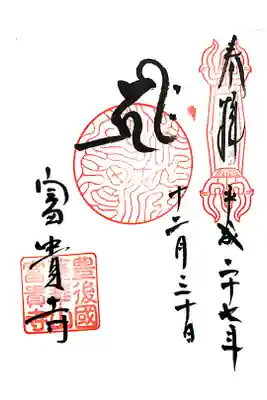 奉拝 平成二十七年
十二月三十日
富貴寺
豊後國
富貴寺